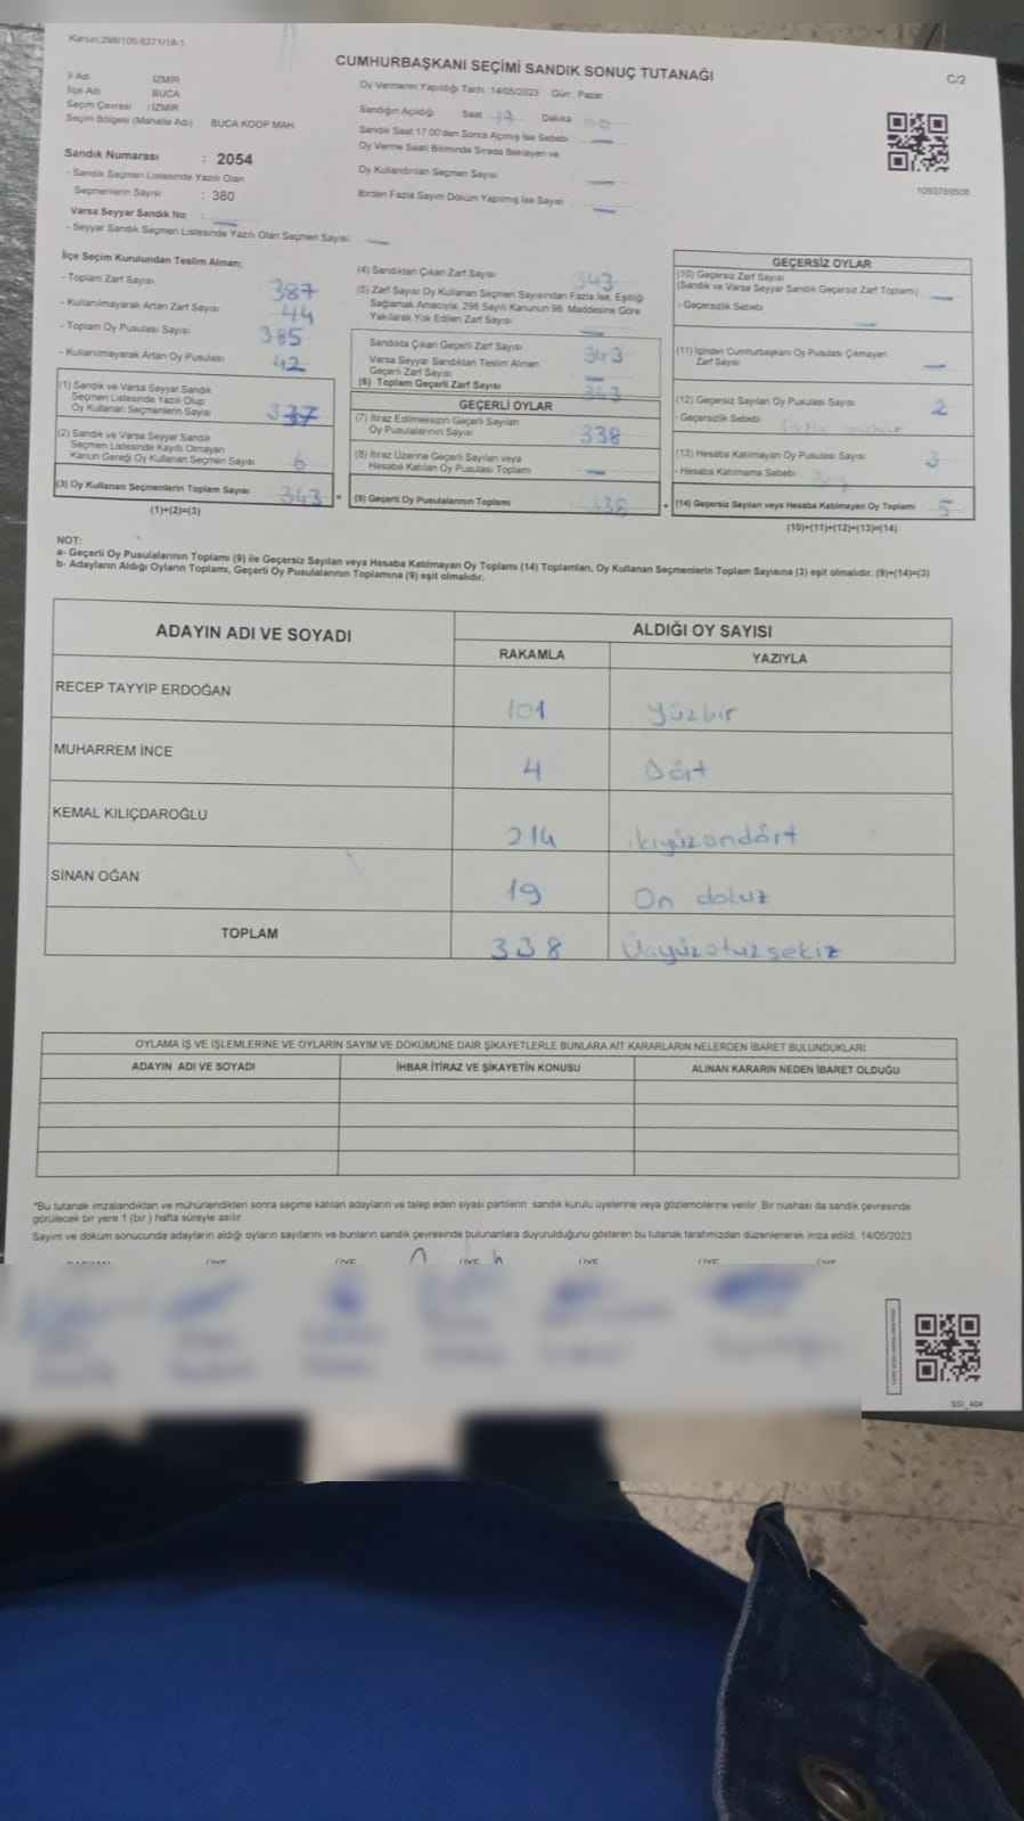 Kanun:298/105-6271/18-1
CUMHURBAŞKANI SEÇİMİ SANDIK SONUÇ TUTANAĞI
C/2
İl Adı İZMİR
İlçe Adı BUCA
Seçim Çevresi : İZMİR
Seçim Bölgesi (Mahalle Adı) BUCA KOOP MAH.
Oy Vermenin Yapıldığı Tarih: 14/05/2023 Gün: Pazar
Sandığın Açıldığı Saat Dakika
Sandık Saat 17:00'den Sonra Açılmış İse Sebebi
Oy Verme Saati Bitiminde Sırada Bekleyen ve
Oy Kullandırılan Seçmen Sayısı
Birden Fazla Sayım Döküm Yapılmış İse Sayısı
Sandık Numarası : 2054
- Sandık Seçmen Listesinde Yazılı Olan
Seçmenlerin Sayısı : 380
Varsa Seyyar Sandık No :
- Seyyar Sandık Seçmen Listesinde Yazılı Olan Seçmen Sayısı
İlçe Seçim Kurulundan Teslim Alınan;
- Toplam Zarf Sayısı 387
- Kullanılmayarak Artan Zarf Sayısı 44
- Toplam Oy Pusulası Sayısı 385
- Kullanılmayarak Artan Oy Pusulası 42
(1) Sandık ve Varsa Seyyar Sandık
Seçmen Listesinde Yazılı Olup
Oy Kullanan Seçmenlerin Sayısı 337
(2) Sandık ve Varsa Seyyar Sandık
Seçmen Listesinde Kayıtlı Olmayan
Kanun Gereği Oy Kullanan Seçmen Sayısı 6
(3) Oy Kullanan Seçmenlerin Toplam Sayısı 343
(1)+(2)=(3)
(4) Sandıktan Çıkan Zarf Sayısı 343
(5) Zarf Sayısı Oy Kullanan Seçmen Sayısından Fazla İse, Eşitliği
Sağlamak Amacıyla, 298 Sayılı Kanunun 98. Maddesine Göre
Yakılarak Yok Edilen Zarf Sayısı
Sandıkta Çıkan Geçerli Zarf Sayısı 343
Varsa Seyyar Sandıktan Teslim Alınan
Geçerli Zarf Sayısı
(6) Toplam Geçerli Zarf Sayısı 343
GEÇERLİ OYLAR
(7) İtiraz Edilmeksizin Geçerli Sayılan
Oy Pusulalarının Sayısı 338
(8) İtiraz Üzerine Geçerli Sayılan veya
Hesaba Katılan Oy Pusulası Toplamı
(9) Geçerli Oy Pusulalarının Toplamı 338
GEÇERSİZ OYLAR
(10) Geçersiz Zarf Sayısı
(Sandık ve Varsa Seyyar Sandık Geçersiz Zarf Toplamı)
- Geçersizlik Sebebi
(11) İçinden Cumhurbaşkanı Oy Pusulası Çıkmayan
Zarf Sayısı
(12) Geçersiz Sayılan Oy Pusulası Sayısı 2
- Geçersizlik Sebebi
(13) Hesaba Katılmayan Oy Pusulası Sayısı 3
- Hesaba Katılmama Sebebi
(14) Geçersiz Sayılan veya Hesaba Katılmayan Oy Toplamı 5
(10)+(11)+(12)+(13)=(14)
NOT:
a- Geçerli Oy Pusulalarının Toplamı (9) ile Geçersiz Sayılan veya Hesaba Katılmayan Oy Toplamı (14) Toplamları, Oy Kullanan Seçmenlerin Toplam Sayısına (3) eşit olmalıdır. (9)+(14)=(3)
b- Adayların Aldığı Oyların Toplamı, Geçerli Oy Pusulalarının Toplamına (9) eşit olmalıdır.
ADAYIN ADI VE SOYADI ALDIĞI OY SAYISI
RAKAMLA YAZIYLA
RECEP TAYYİP ERDOĞAN 101 yüzbir
MUHARREM İNCE 4 Dört
KEMAL KILIÇDAROĞLU 214 ikiyüzondört
SİNAN OĞAN 19 On dokuz
TOPLAM 338 Üçyüzotuzsekiz
OYLAMA İŞ VE İŞLEMLERİNE VE OYLARIN SAYIM VE DÖKÜMÜNE DAİR ŞİKAYETLERLE BUNLARA AİT KARARLARIN NELERDEN İBARET BULUNDUKLARI
ADAYIN ADI VE SOYADI İHBAR İTİRAZ VE ŞİKAYETİN KONUSU ALINAN KARARIN NEDEN İBARET OLDUĞU
*Bu tutanak imzalandıktan ve mühürlendikten sonra seçime katılan adayların ve talep eden siyasi partilerin sandık kurulu üyelerine veya gözlemcilerine verilir. Bir nüshası da sandık çevresinde
görülecek bir yere 1 (bir ) hafta süreyle asılır.
Sayım ve döküm sonucunda adayların aldığı oyların sayılarını ve bunların sandık çevresinde bulunanlara duyurulduğunu gösteren bu tutanak tarafımızdan düzenlenerek imza edildi. 14/05/2023